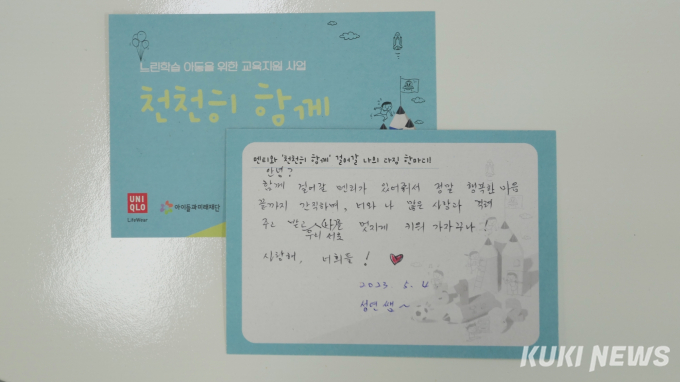 느린학습 아동을 위한 교육지원 사업
천천히 함께
UNI
QLO
LifeWear
아이들과미래재단
멘티와 '천천히 함께' 걸어갈 나의 다짐 한마디!
안녕?
함께 걸어갈 멘티가 되어줘서 정말 행복한 마음
끝까지 간직하며, 너와 나 많은 사랑과 격려
주고 받고 서로 멋지게 키워 가자꾸나!
사랑해, 너희들!
2023 5. 4
쌤~
KUKI NEWS